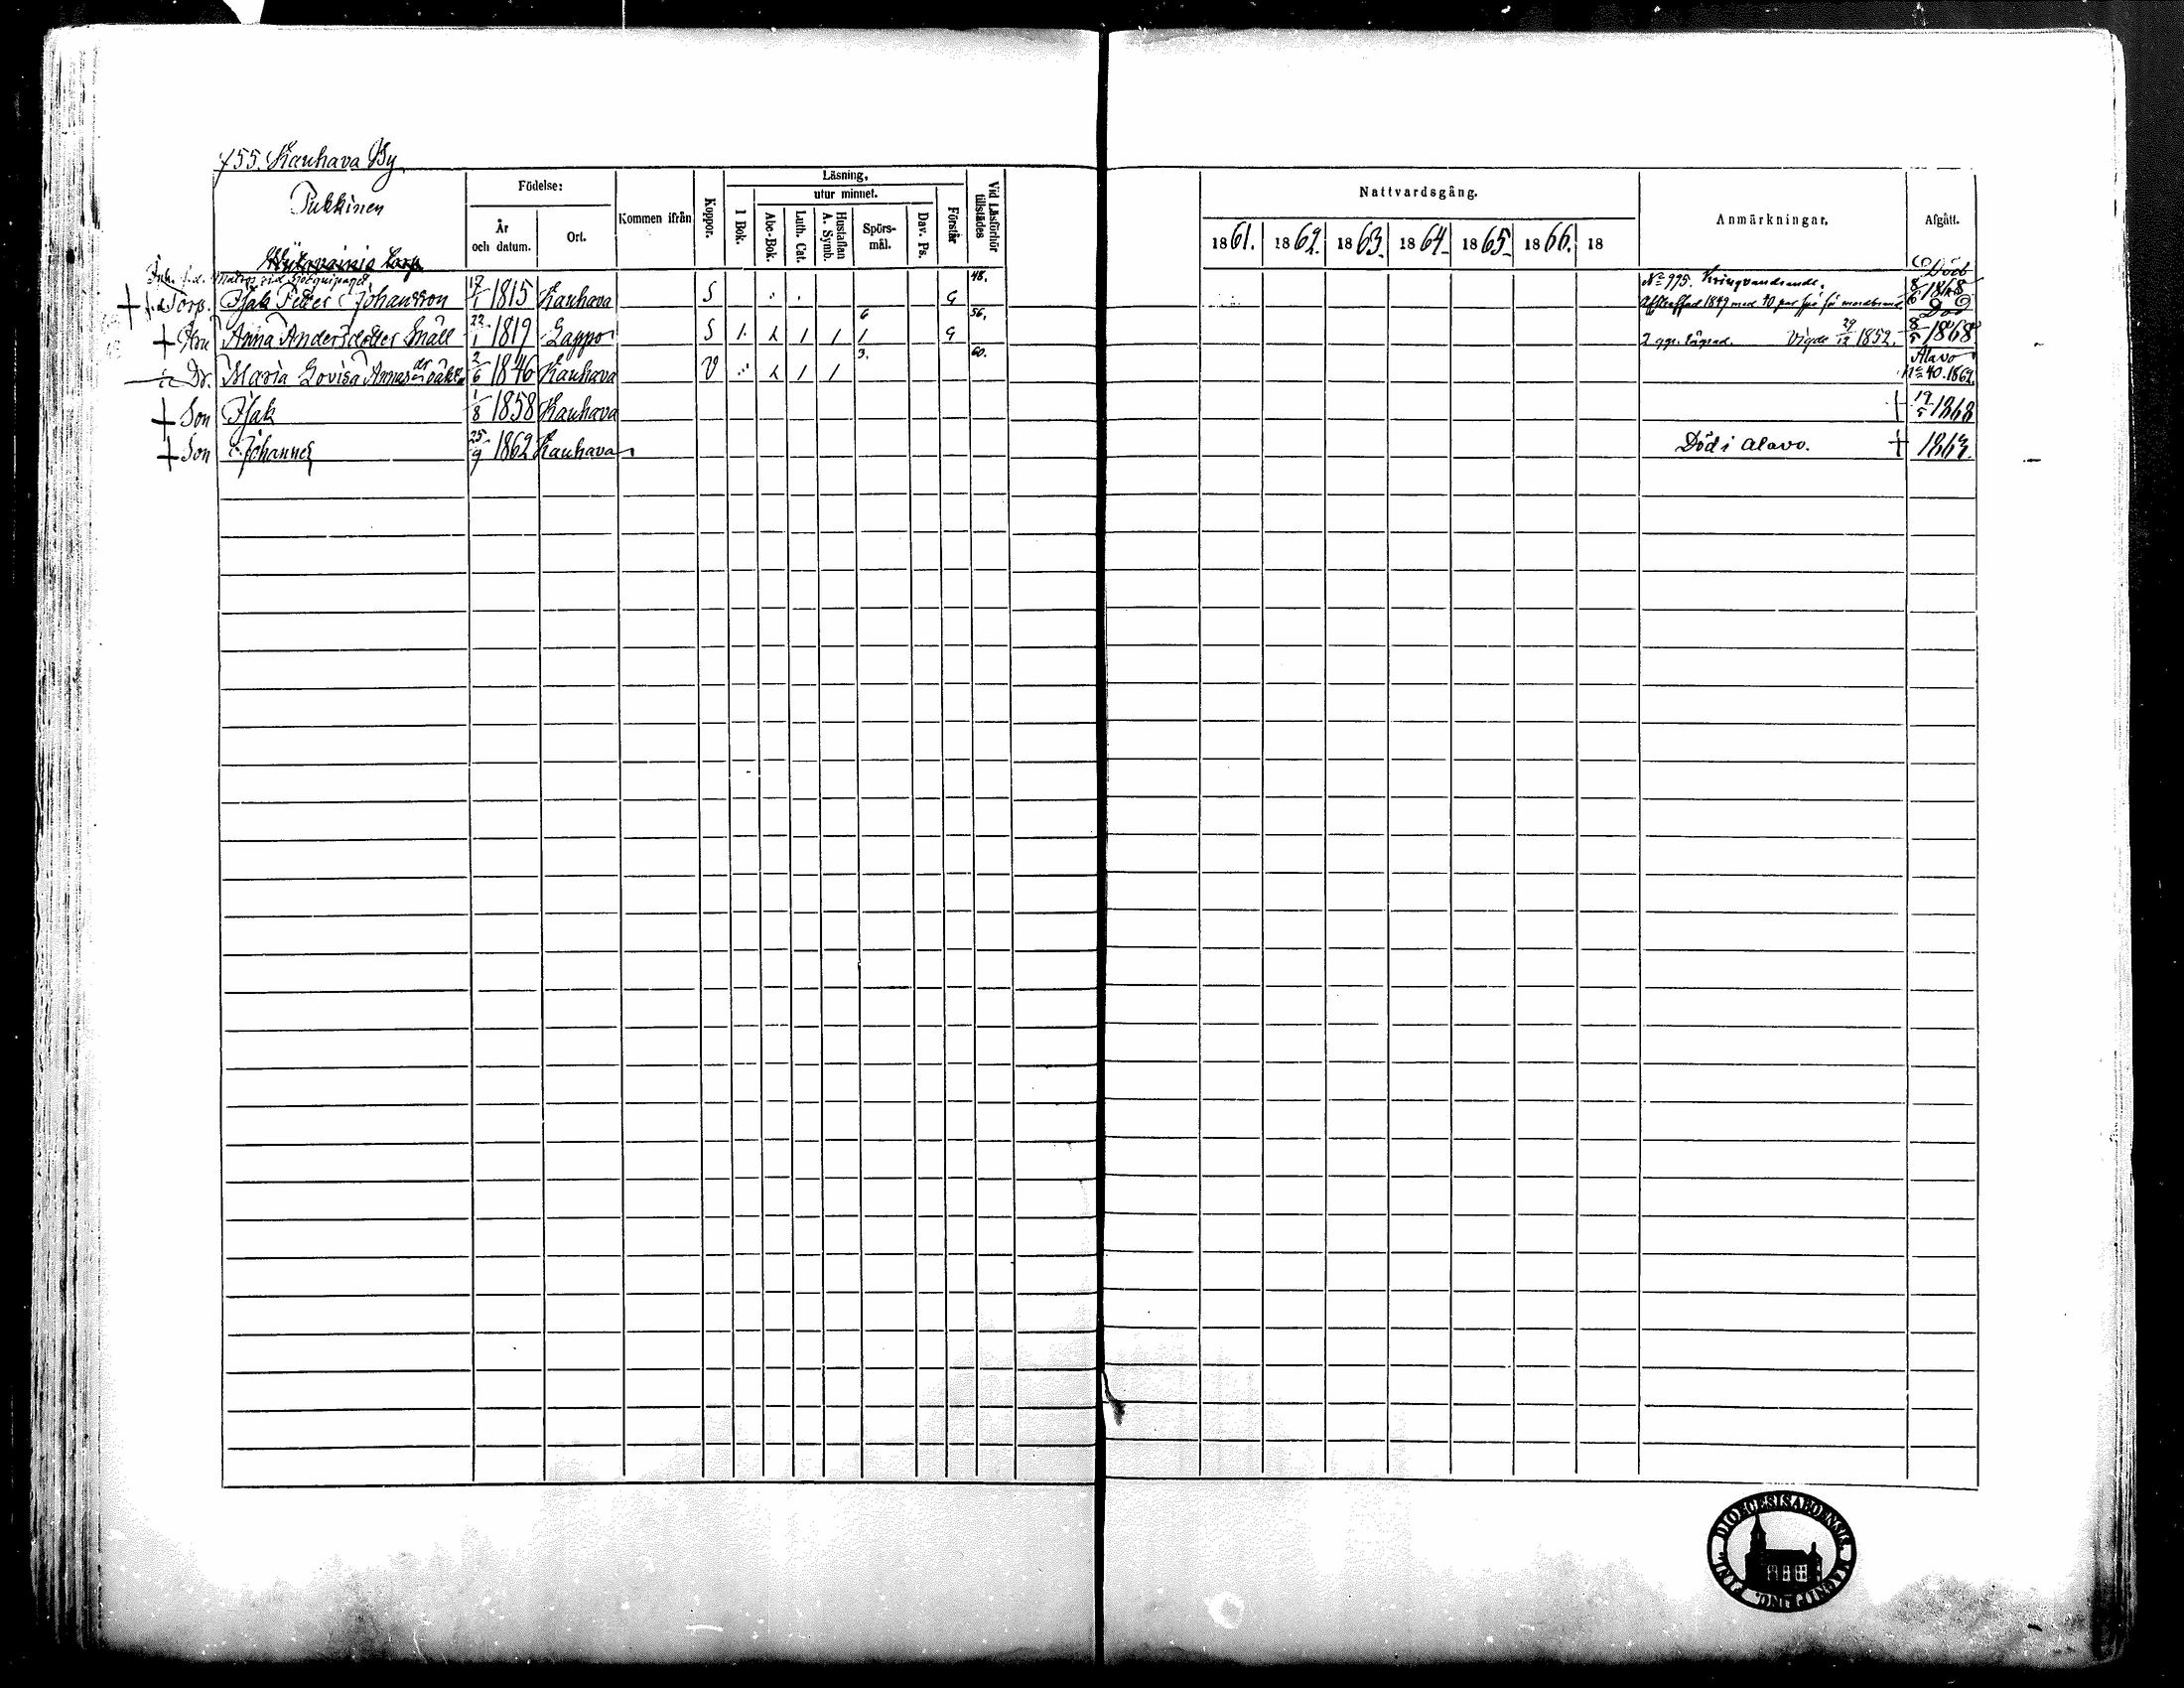 755. Kauhava By
Pukkinen
Födelse:
År och datum.
Ort.
Kommen ifrån
Koppor.
Läsning,
utur minnet.
I Bok.
Abc-Bok.
Luth. Cat.
Hustaflan A. Symb.
Spörs-mål.
Dav. Ps.
Förstår
Vid Läsförhör tillstädes
Nattvardsgång.
1861. 1862. 1863. 1864. 1865. 1866. 18
Anmärkningar.
Afgått.
Torp
Inh. f.d. Matros vid 48. No 995. Kringvandrande. Död
f.d. Torp. Isak Peter Johansson 17/1 1815 Kauhava S G Afstraffad 1849 med 40 par spö för mordbrand 8/6 1868
6 56. Död
Hu Anna Andersdotter Snäll 22/1 1819 Lappo S 1 1 1 1 G 2 ggr. lägrad. Vigde 29/12 1852. 8/5 1868
3. 60. Alavo
Dr. Maria Lovisa Annasdr 2/6 1846 Kauhava V 1 1 No 40. 1862.
Son Isak 1/8 1858 Kauhava † 19/5 1868
Son Johannes 25/9 1862 Kauhava Död i Alavo. † 1863.
DIOECESIS ABOENSIS MAGNI PRINC. FINL.